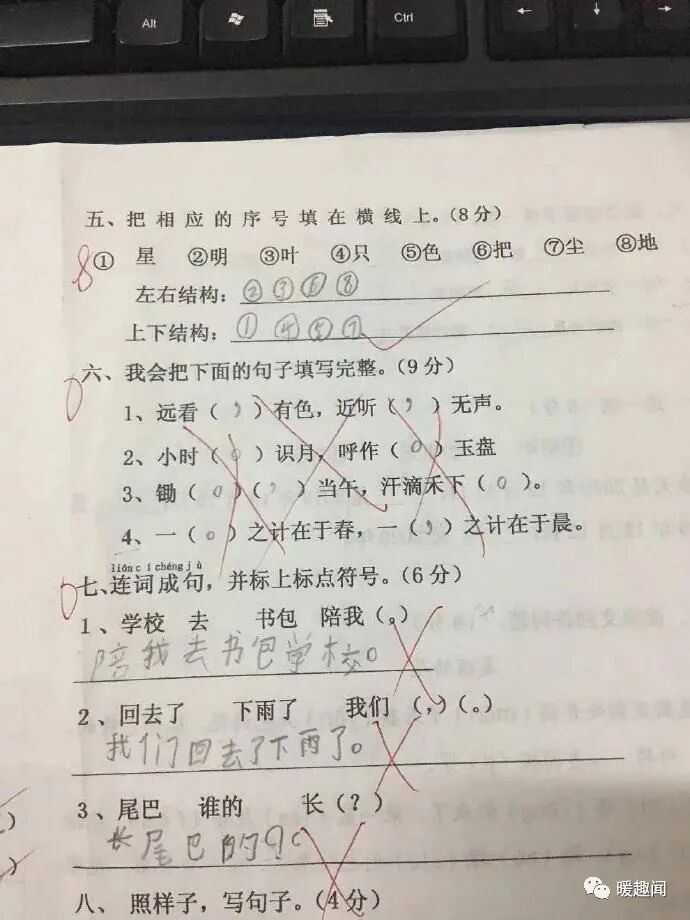 Alt
Ctrl
五、把相应的序号填在横线上。(8分)
8
① 星 ②明 ③叶 ④只 ⑤色 ⑥把 ⑦尘 ⑧地
左右结构: ②③⑥⑧
上下结构: ①④⑤⑦
0
六、我会把下面的句子填写完整。(9分)
1、远看( , )有色，近听( , )无声。
2、小时( 。 )识月，呼作( 。 )玉盘
3、锄( 。 )( , )当午，汗滴禾下( 。 )。
4、一( 。 )之计在于春，一( , )之计在于晨。
lián c í chéng j ù
0
七、连词成句，并标上标点符号。(6分)
1、学校 去 书包 陪我(。)
陪我去书包学校。
2、回去了 下雨了 我们 (，)(。)
我们回去了下雨了。
3、尾巴 谁的 长(？)
长尾巴的
八、照样子，写句子。(4分)
暖趣闻